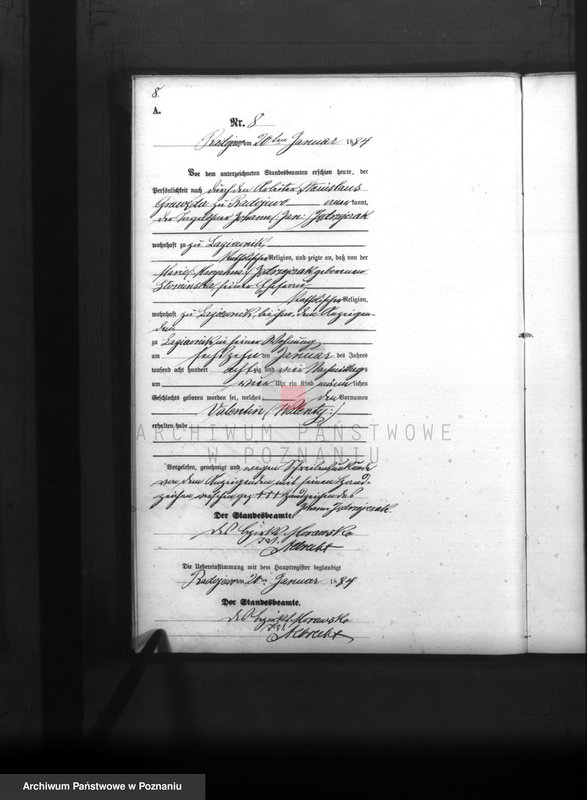 8.
A.
Nr. 8
Radojewo am 20ten Januar 1884
Vor dem unterzeichneten Standesbeamten erschien heute, der
Persönlichkeit nach durch den Arbeiter Stanislaus
zu Radojewo anerkannt,
der Tagelöhner Johann (Jan:)
wohnhaft zu
katholischer Religion, und zeigte an, daß von der
Maria (Maryanna) geborenen
seiner Ehefrau
katholischer Religion,
wohnhaft zu bei ihm, dem Anzeigen-
den
zu in seiner Wohnung
am sechszehnten Januar des Jahres
tausend acht hundert achtzig und vier Nachmittags
um vier Uhr ein Kind männlichen
Geschlechts geboren worden sei, welches den Vornamen
Valentin (Walenty:)
erhalten habe
ARCHIWUM PAŃSTWOWE
W POZNANIU
Vorgelesen, genehmigt und wegen Schreibensunkunde
von dem Anzeigenden mit seinem Hand-
zeichen versehen gez. +++ Handzeichen des
Johann
Der Standesbeamte.
des Bezirks Morawsko
Albrecht
Die Uebereinstimmung mit dem Hauptregister beglaubigt
Radojewo am 20ten Januar 1884
Der Standesbeamte.
des Bezirks Morawsko
Albrecht
Archiwum Państwowe w Poznaniu